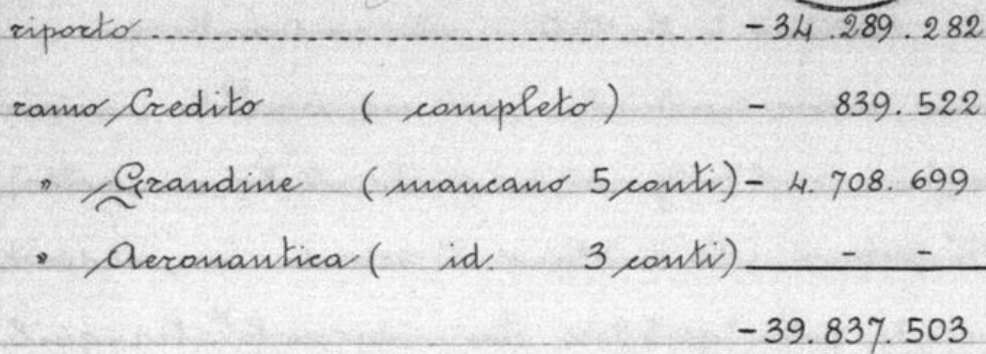 riporto .................................... - 34.289.282
ramo Credito ( completo ) - 839.522
" Grandine ( mancano 5 conti) - 4.708.699
" Aeronautica ( id. 3 conti) - -
- 39.837.503